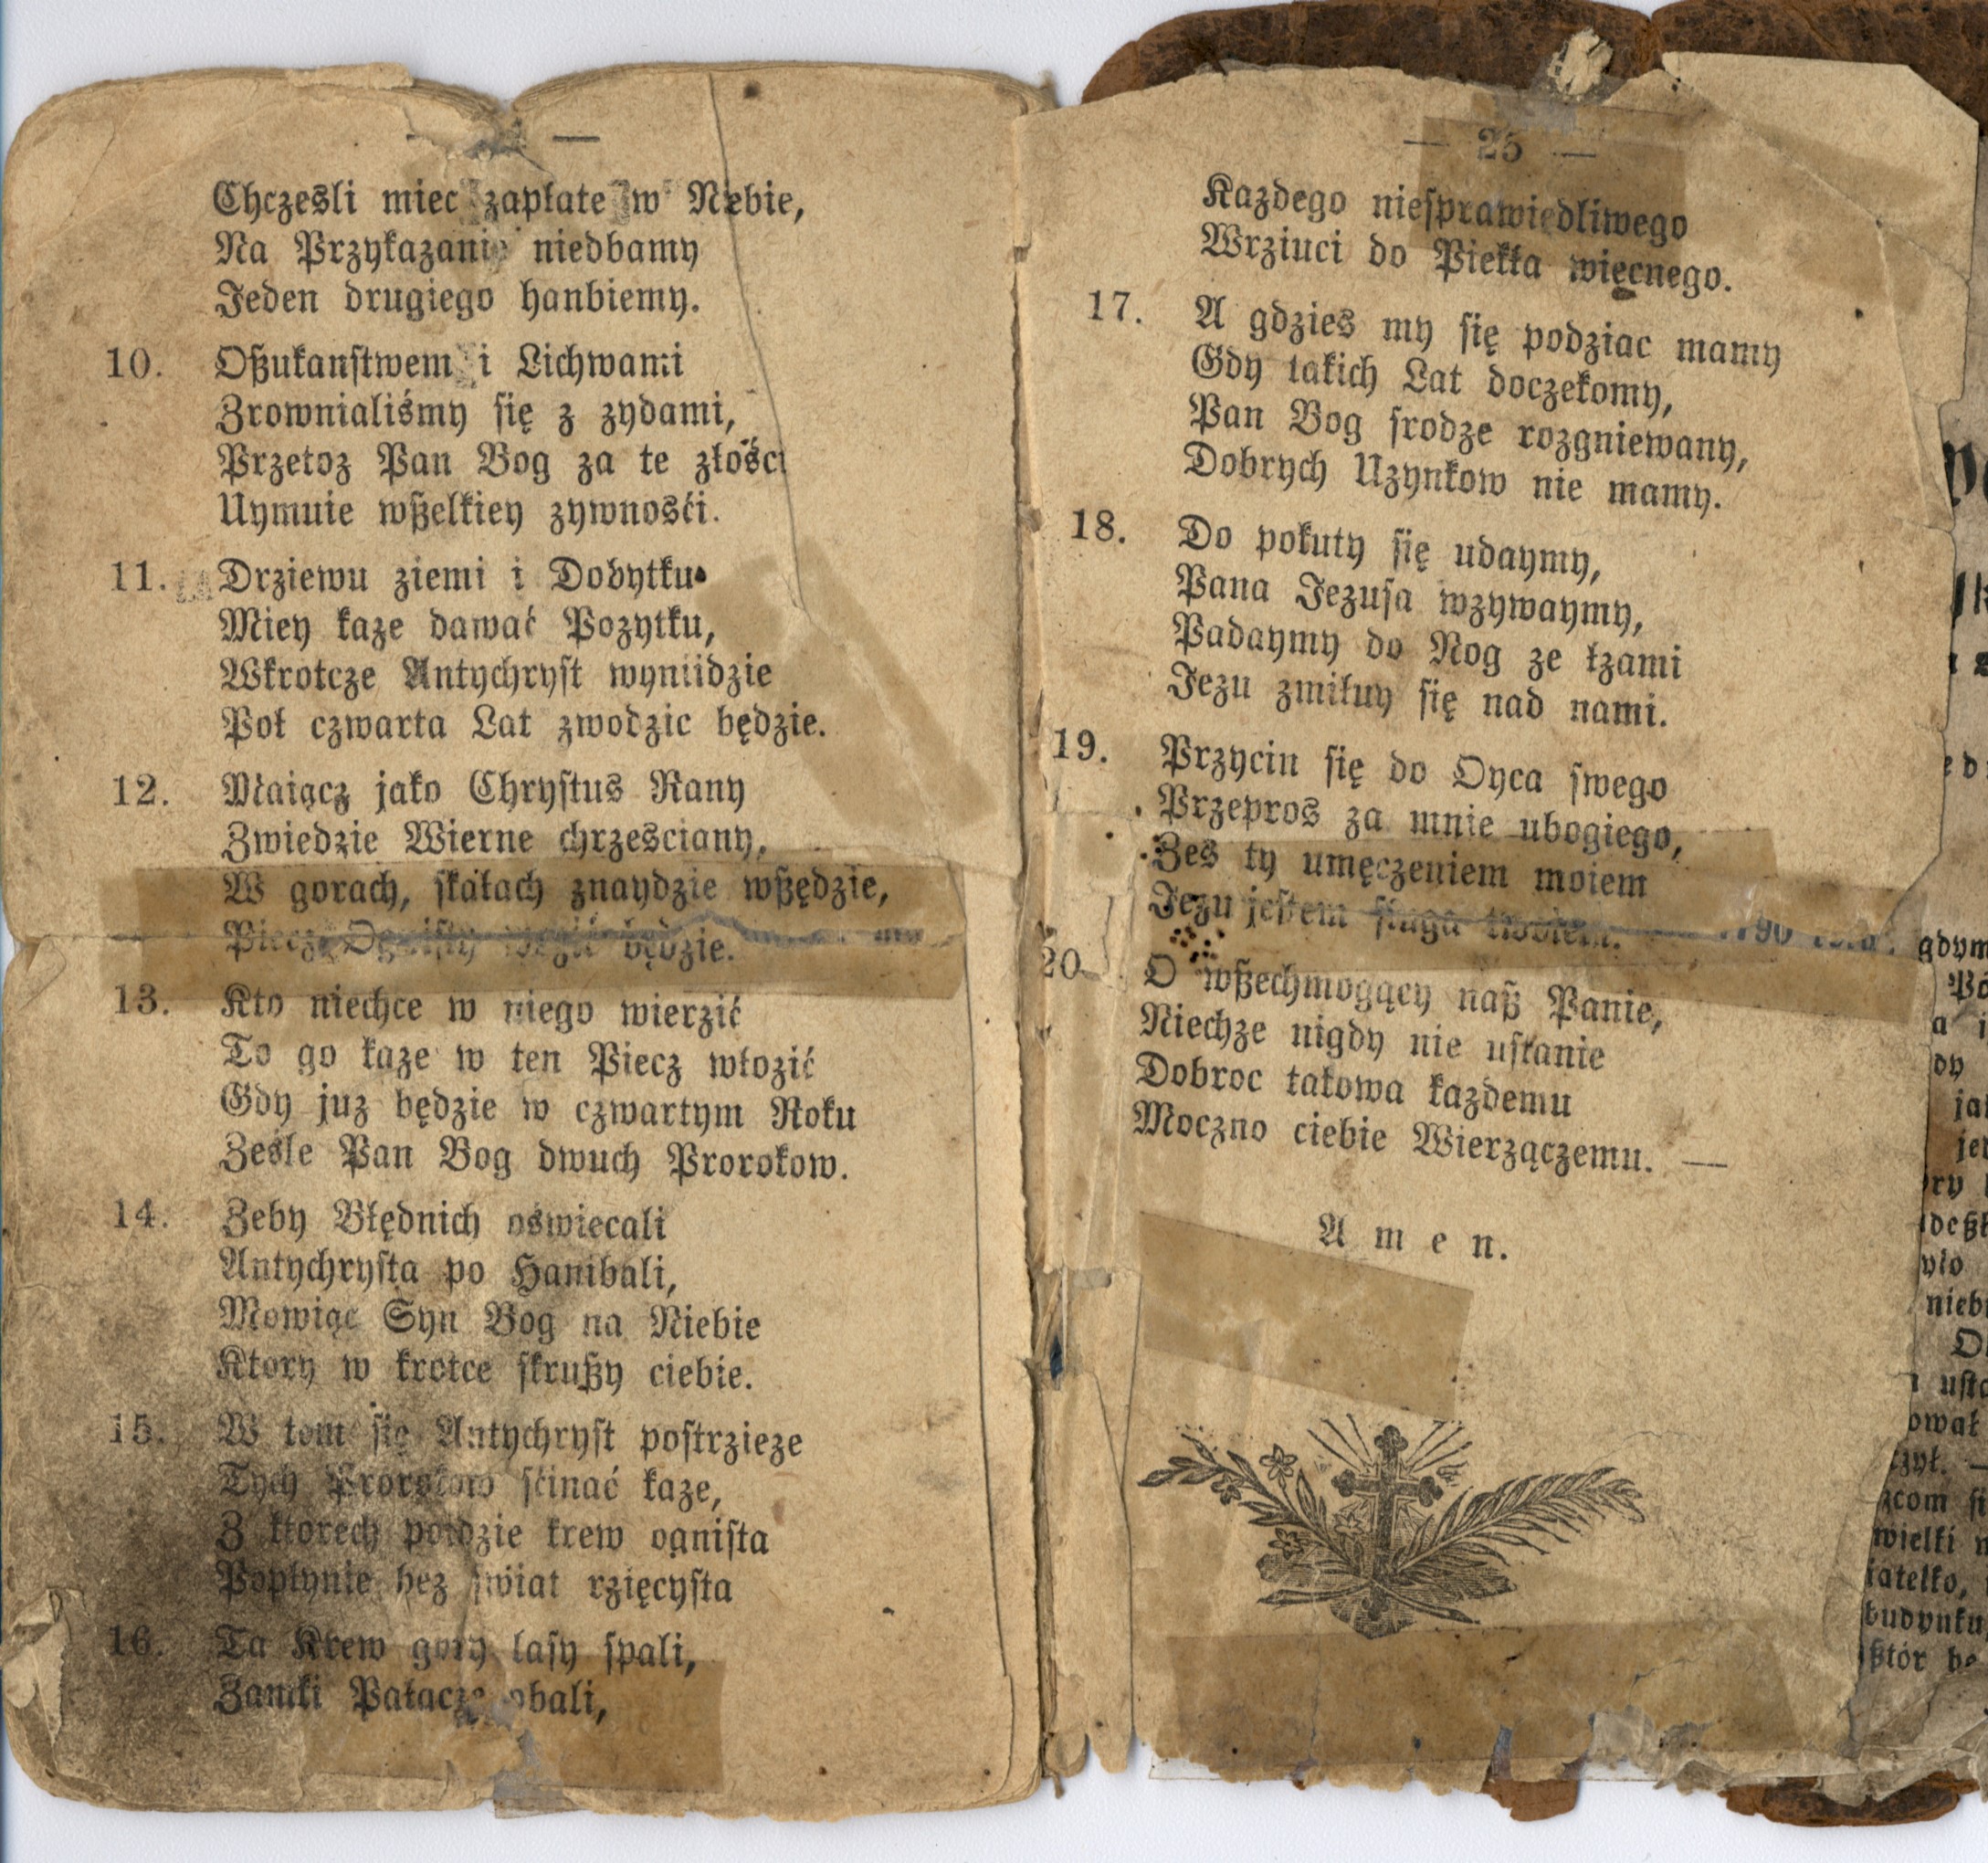 Chczesli miec zapłate w Niebie,
Na Przykazanie niedbamy
Jeden drugiego hanbiemy.
10. Oßukanstwem i Lichwami
Zrownialiśmy się z zydami,
Przetoz Pan Bog za te złości
Uymuie wßelkiey zywnośći.
11. Drziewu ziemi i Dobytku
Miey kaze dawać Pozytku,
Wkrotcze Antychryst wyniidzie
Poł czwarta Lat zwodzic będzie.
12. Maiącz jako Chrystus Rany
Zwiedzie Wierne chrzesciany,
W gorach, skałach znaydzie wßędzie,
Piecz Ognisty będzie.
13. Kto niechce w niego wierzić
To go kaze w ten Piecz włozić
Gdy juz będzie w czwartym Roku
Ześle Pan Bog dwuch Prorokow.
14. Zeby Błędnich oświecali
Antychrysta po Hanibali,
Mowiąc Syn Bog na Niebie
Ktory w krotce skrußy ciebie.
15. W tom się Antychryst postrzieze
Tych Prorokow sćinać kaze,
Z ktorech poidzie krew ognista
Popłynie bez świat rzięcysta
16. Ta Krew gory lasy spali,
Zamki Pałacze obali,
— 25 —
Kazdego niesprawiedliwego
Wrziuci do Piekła więcnego.
17. A gdzies my się podziac mamy
Gdy takich Lat doczekomy,
Pan Bog srodze rozgniewany,
Dobrych Uzynkow nie mamy.
18. Do pokuty się udaymy,
Pana Jezusa wzywaymy,
Padaymy do Nog ze łzami
Jezu zmiłuy się nad nami.
19. Przyciu się do Oyca swego
Przepros za mnie ubogiego,
Zes ty umęczeniem moiem
Jezu jestem sługa twoiem.
20 O wßechmogący naß Panie,
Niechze nigdy nie ustanie
Dobroc takowa kazdemu
Moczno ciebie Wierzączemu. —
Amen.
gdym
jer
niebi
ował
zcom si
wielki
iatełko,
budynku